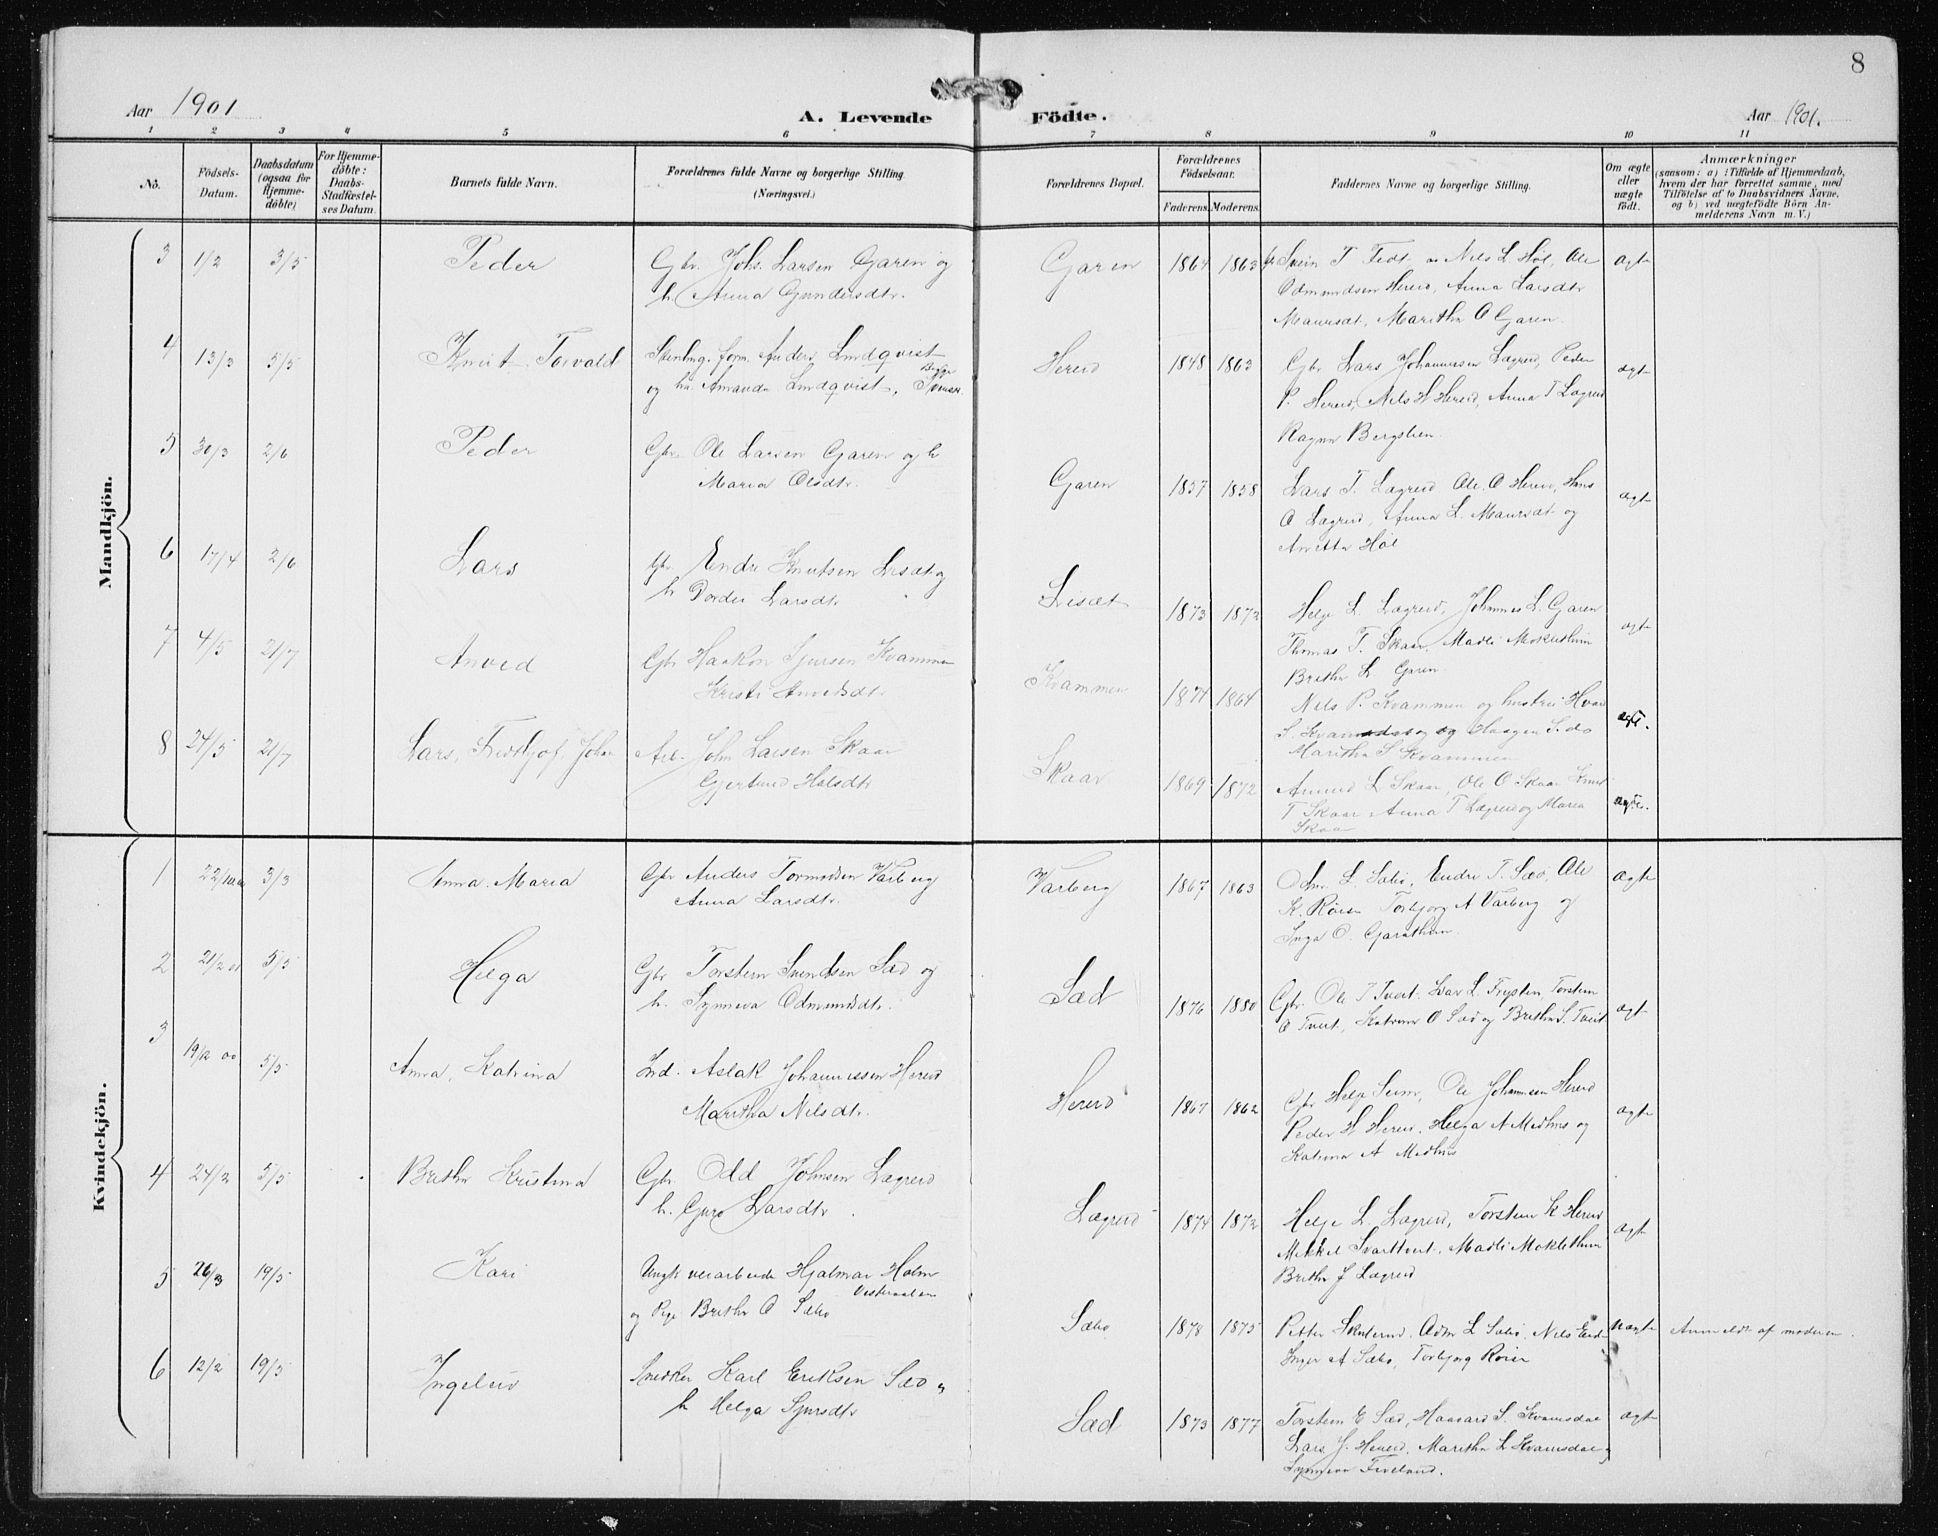 8
Aar 1901
A. Levende Födte.
Aar 1901.
1 2 3 4 5 6 7 8 9 10 11
No.
Födsels-
Datum.
Daabsdatum
(ogsaa for
Hjemme-
döbte)
For Hjemme-
döbte:
Daabs-
Stadfæstel-
ses Datum.
Barnets fulde Navn.
Forældrenes fulde Navne og borgerlige Stilling
(Næringsvei.)
Forældrenes Bopæl.
Forældrenes
Födselsaar.
Faderens. Moderens.
Faddernes Navne og borgerlige Stilling.
Om ægte
eller
uægte
födt.
Anmærkninger
(saasom: a) i Tilfælde af Hjemmedaab,
hvem der har forrettet samme, med
Tilföielse af to Daabsvidners Navne,
og b) ved uægtefödte Börn An-
melderens Navn m. V.)
Mandkjön.
3 1/2 3/5 Peder
Gbr. Johs. Larsen Garen og
h. Anna Gundersdtr.
Garen 1864 1863
Svein T Tedt Nils L Høl, Ole
Odmundsen Hereid, Anna Larsdtr
Maursæt, Maritha O Garen.
ægte
4 13/3 5/5 Knut Torvald
Stenhug. form. Anders Lindqvist
og hu Amanda Lindqvist, Begge Svensk.
Hereid 1848 1863
Gbr Lars Johannessen Lægreid, Peder
P. Hereid, Nils H Hereid, Anna T Lægreid
Ragna Bergslien.
ægte
5 30/3 2/6 Peder
Gbr. Ole Larsen Garen og h
Maria Olsdtr.
Garen 1857 1858
Lars T. Lægreid Ole O Hereid, Hans
O Lægreid, Anna L. Maursæt og
Anetta Høl
ægte
6 17/4 2/6 Lars
Gbr Endre Knutsen Lisæt og
h Dordei Larsdtr
Lisæt 1873 1872
Helge L. Lægreid, Johannes L. Garen
Thomas T. Skaar, Madli Moklethun
Britha L Garen.
ægte
7 4/5 21/7 Anved
Gbr Haakon Sjursen Kvammen
Kristi Anvedsdtr
Kvammen 1874 1864
Nils P. Kvammen og hustru
S. og Haagen S. do
Maritha S Kvammen
ægte.
8 24/5 21/7 Lars, Fridthjof, Johan
Arb. John Larsen Skaar
Gjertrud Halsdtr
Skaar 1869 1872
Amund L Skaar, Ole O Skaar Knut
T Skaar Anna T Lægreid og Maria
Skaar
ægte.
Kvindekjön.
1 22/1 3/3 Anna Maria
Gbr Anders Tormodsen Varberg
Anna Larsdtr.
Varberg 1867 1863
Odm. L. Sæbø, Endre T. Sæd, Ole
K. Røise Torbjørg A Varberg og
Inga O. Garathun.
ægte
2 21/2 01 5/5 Helga
Gbr Torstein Svendsen Sæd og
h. Synneva Odmundsdtr.
Sæd 1876 1880
Gbr. Ole T Tveit. Lars L. Trysten Torstein
O Tveit, Katrina O Sæd og Britha S. Tveit
ægte
3 19/12 00 5/5 Anna, Katrina
Ind. Aslak Johannessen Hereid
Maritha Nilsdtr.
Hereid 1867 1862
Gbr Helge Seim, Ole Johannesen Hereid
Peder H Hereid, Helga A Medhus og
Katrina A Medhus
ægte
4 24/2 5/5 Britha Kristina
Gbr. Odd Johnsen Lægreid
h. Guro Larsdtr.
Lægreid 1874 1872
Helge L. Lægreid, Torstein K Hereid
Mikkel Svarttveit. Madli Moklethun
Britha J Lægreid
ægte
5 26/3 19/5 Kari
Ungk verarbeide Hjalmar Holm
Vesteraalen
og Pige Britha O Sæbø
Sæbø 1878 1875
Petter Odm L Sæbø, Nils
Inger A Sæbø, Torbjørg Røise
Uægte
Anmeldt af moderen.
6 12/2 19/5 Ingeleiv
Snekker Karl Eriksen Sæd
h Helga Sjursdtr
Sæd 1873 1877
Torstein E Sæd, Haavard S. Kvamsdal
Lars J. Hereid. Maritha L Kvamsdal
Synneva Fiveland.
ægte